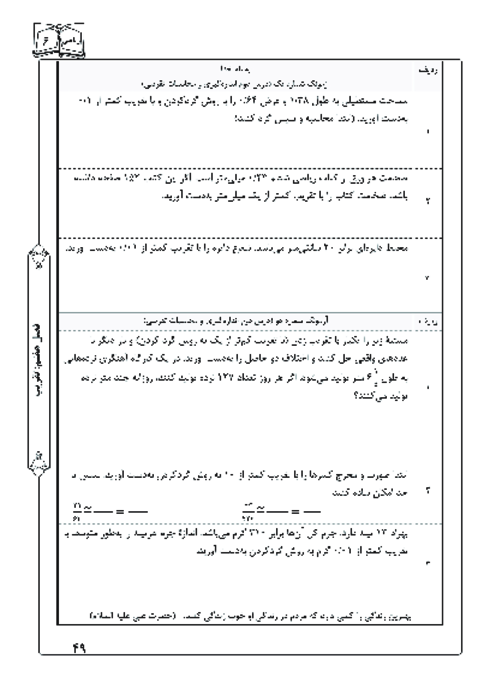 ریاضی ۶
ردیف
آزمونک شماره یک (درس دوم اندازه‌گیری و محاسبات تقریبی)
مساحت مستطیلی به طول ۱/۳۸ و عرض ۰/۶۴ را با روش گرد کردن و با تقریب کمتر از ۰/۱
به‌دست آورید. (ابتدا محاسبه و سپس گرد کنید)
۱
ضخامت هر ورق از کتاب ریاضی ششم ۰/۲۳ میلی‌متر است. اگر این کتاب ۱۵۲ صفحه داشته
باشد، ضخامت کتاب را با تقریب کمتر از یک میلی‌متر به‌دست آورید.
۲
محیط دایره‌ای برابر ۲۰ سانتی‌متر می‌باشد. شعاع دایره را با تقریب کمتر از ۰/۰۱ به‌دست آورید.
آزمونک شماره دو (درس دوم اندازه‌گیری و محاسبات تقریبی)
مسئلهٔ زیر را یکبار با تقریب زدن (با تقریب کم‌تر از یک به روش گرد کردن) و بار دیگر با
عددهای واقعی حل کنید و اختلاف دو حاصل را به‌دست آورید. در یک کارگاه آهنگری نرده‌هایی
متر تولید می‌شود. اگر هر روز تعداد ۱۲۷ نرده تولید کنند، روزانه چند متر نرده
تولید می‌کنند؟
۱
ابتدا صورت و مخرج کسرها را با تقریب کمتر از ۱۰ به روش گرد کردن به‌دت آورید. سپس تا
حد امکان ساده کنید.
۲
بهزاد ۱۳ تیله دارد. جرم کل آن‌ها برابر ۳۱۰ گرم می‌باشد. اندازهٔ جرم هر تیله را به‌طور متوسط با
تقریب کمتر از ۰/۰۱ گرم به روش گرد کردن به‌دست آورید.
۳
بهترین زندگی را کسی دارد که مردم در زندگی او خوب زندگی کنند. (حضرت علی علیه السلام)
فصل هفتم: تقریب
۴۹